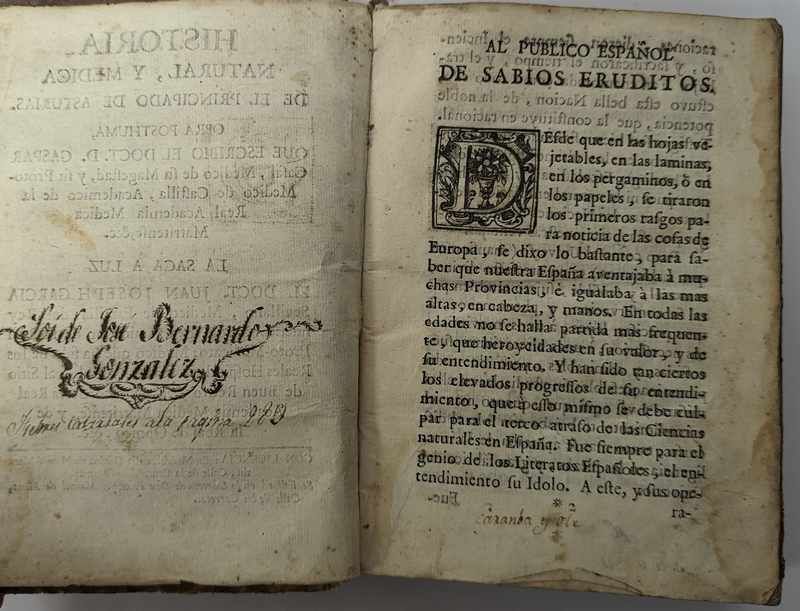 Soi de José Bernardo
Gonzalez
Fiebres Catarrales a la pagina 283
AL PUBLICO ESPAÑOL
DE SABIOS ERUDITOS.
DEſde que en las hojas ve-
jetables, en las laminas,
en los pergaminos, ò en
los papeles, ſe tiraron
los primeros raſgos pa-
ra noticia de las coſas de
Europa, ſe dixo lo baſtante, para ſa-
ber que nueſtra Eſpaña aventajaba à mu-
chas Provincias, è igualaba à las mas
altas, en cabeza, y manos. En todas las
edades no ſe halla partida mas frequen-
te, que heroycidades en ſu valor, y de
ſu entendimiento. Y han ſido tan ciertos
los elevados progreſſos de ſu entendi-
miento, que à eſſo miſmo ſe debe cul-
par para el terco atraſo de las Ciencias
naturales en Eſpaña. Fue ſiempre para el
genio de los Literatos Eſpañoles, el en-
tendimiento ſu Idolo. A eſte, y sus ope-
*2
ra-